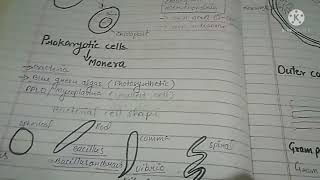 mitochondria
Prokaryotic cells
→ Monera
→ bacteria
→ Blue green algae (Photosynthetic)
PPLO / Mycoplasma (smallest cell)
Bacterial cell shape
Outer
spherical
Rod
comma
spiral
Bacillus
Bacillus anthracis
vibrio
Gram
Gram